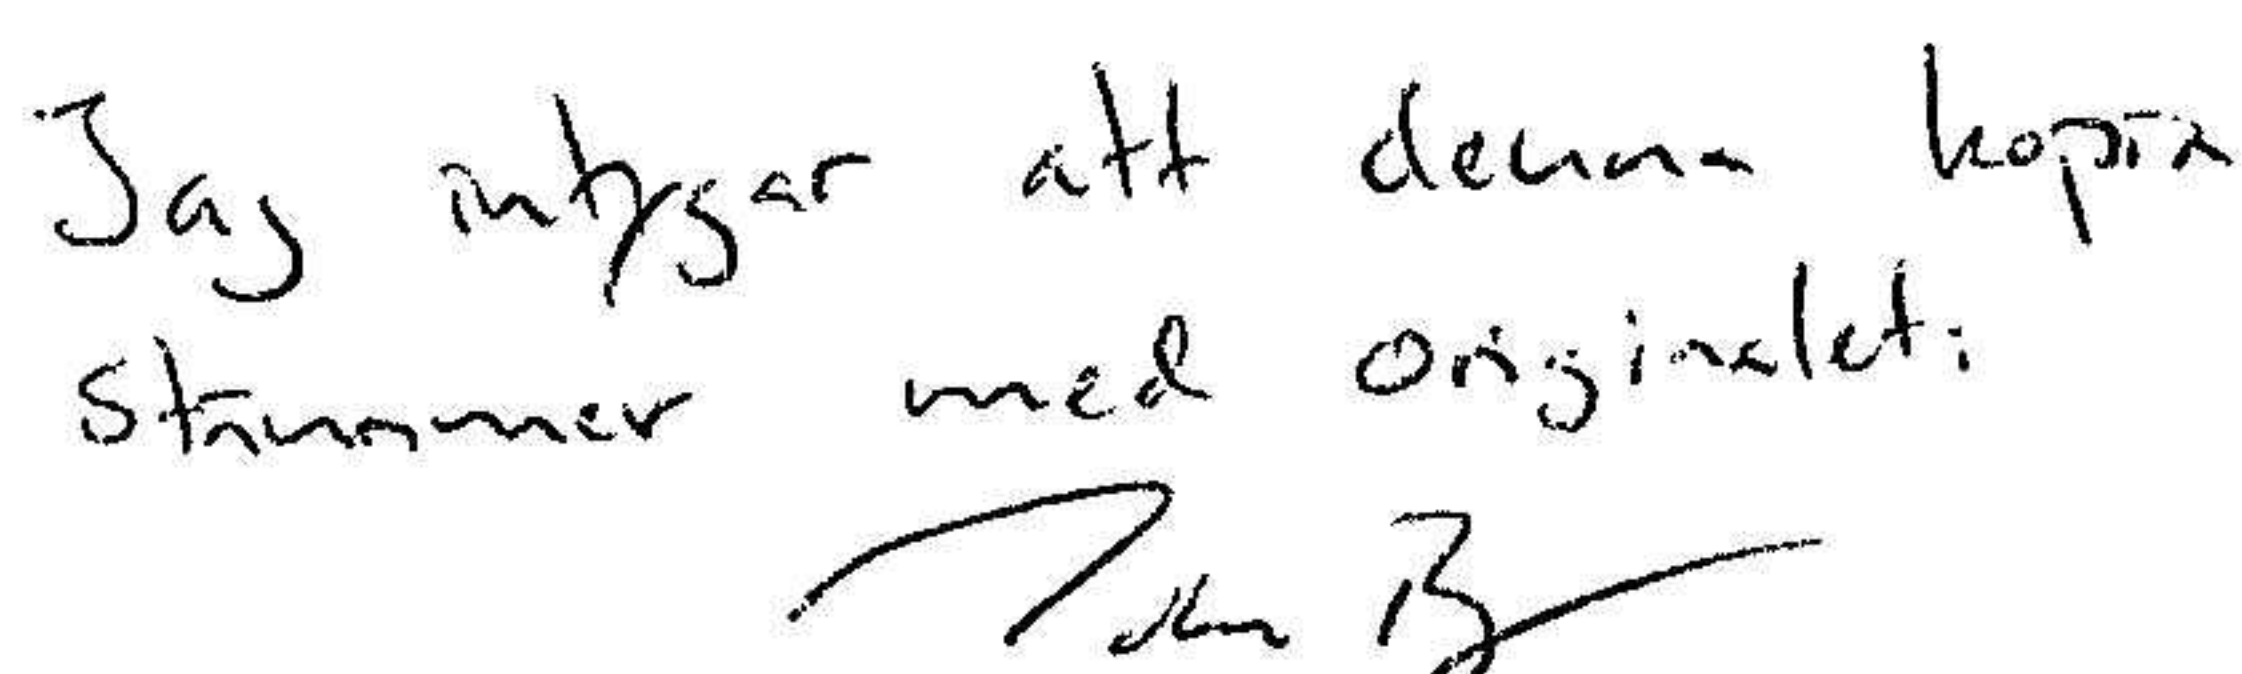 Jag intygar att denna kopia
stämmer med originalet: